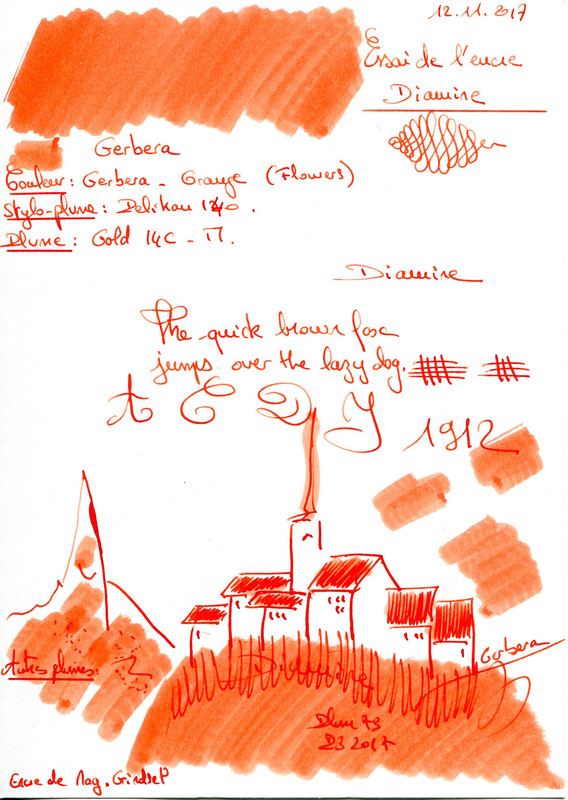 12.11.2017
Essai de l'encre
Diamine
Gerbera
Couleur : Gerbera - Orange (Flowers)
Stylo-plume : Pelikan 1240.
Plume : Gold 14C - M.
Diamine
The quick brown fox
jumps over the lazy dog.
A E D J
1912
Gerbera
Autres plumes :
Diamine
2017
Encre de Mag. Grindsel